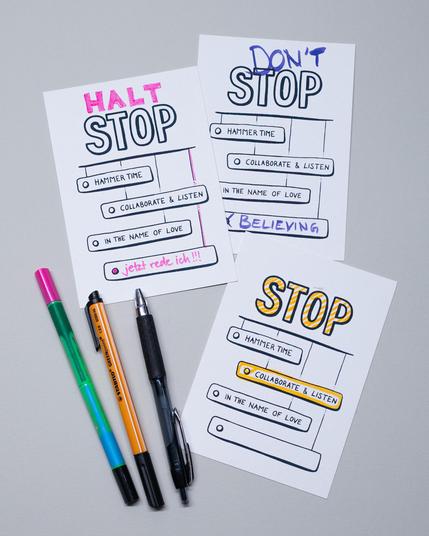 HALT
STOP
HAMMER TIME
COLLABORATE & LISTEN
IN THE NAME OF LOVE
jetzt rede ich!!!
DON'T
STOP
HAMMER TIME
COLLABORATE & LISTEN
IN THE NAME OF LOVE
BELIEVING
STOP
HAMMER TIME
COLLABORATE & LISTEN
IN THE NAME OF LOVE